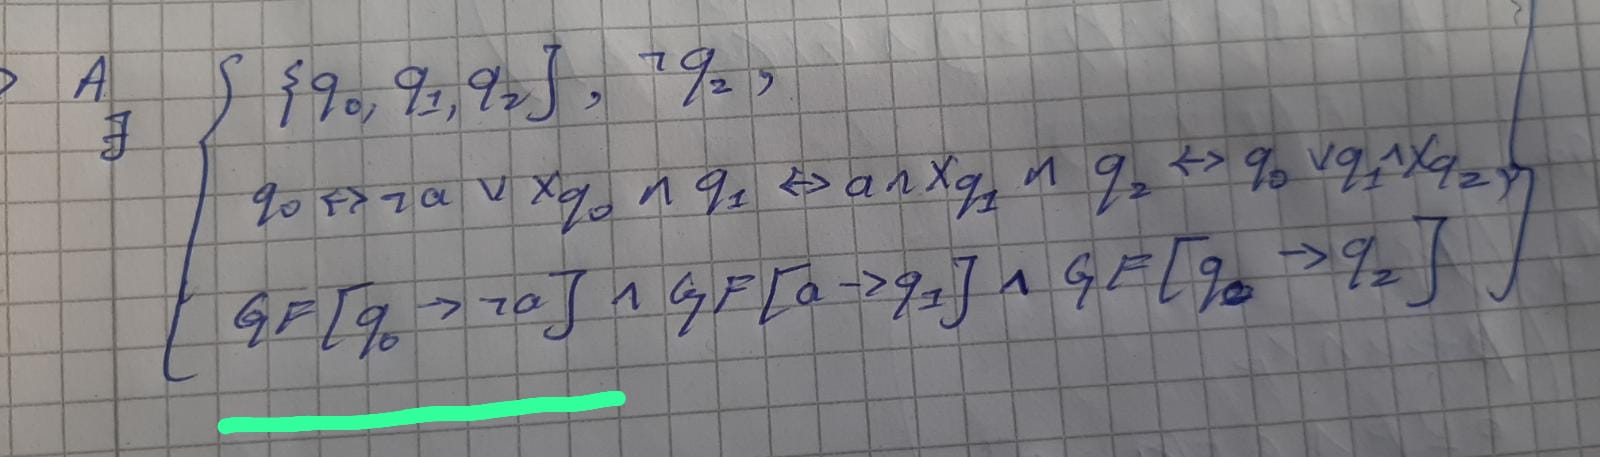 A∃ { {q₀, q₁, q₂}, ¬q₂,
q₀ ↔ ¬a ∨ Xq₀ ∧ q₁ ↔ a ∧ Xq₁ ∧ q₂ ↔ q₀ ∨ q₁ ∧ Xq₂,
GF[q₀ → ¬a] ∧ GF[a → q₁] ∧ GF[q₀ → q₂] }